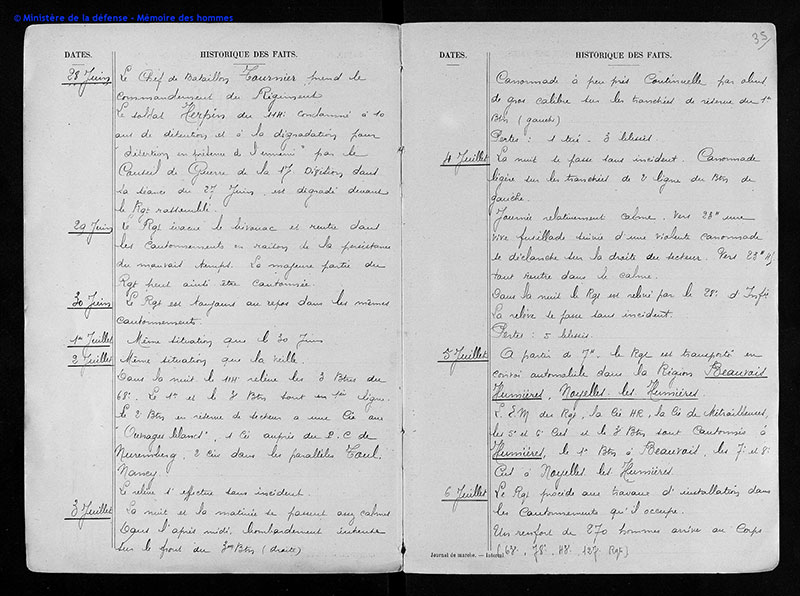 © Ministère de la défense - Mémoire des hommes
DATES. HISTORIQUE DES FAITS.
28 Juin Le Chef de Bataillon Fournier prend le
commandement du Régiment
Le soldat Herpin du condamné à 10
ans de détention et à la dégradation pour
"désertion en présence de l'ennemi" par le
Conseil de Guerre de la Division dans
la séance du 27 Juin est dégradé devant
le Rgt rassemblé.
29 Juin Le Rgt évacue le bivouac et rentre dans
les Cantonnements en raison de la persistance
du mauvais temps. La majeure partie du
Rgt peut ainsi être cantonnée.
30 Juin Le Rgt est toujours au repos dans les mêmes
cantonnements.
1er Juillet Même situation que le 30 Juin
2 Juillet Même situation que la veille.
Dans la nuit le relève les 3 Btns du
68e. Le 1er et le 3 Btns sont en 1ère ligne.
Le 2 Btn en réserve de secteur a une Cie aux
"Ouvrages blancs", 1 Cie auprès du P.C de
Nuremberg, 2 cies dans les parallèles Toul,
Nancy.
La relève s'effectue sans incident.
3 Juillet La nuit et la matinée se passent au calme
Dans l'après midi, bombardement intense
sur le front du 3me Btn (droite)
35
DATES. HISTORIQUE DES FAITS.
Canonnade à peu près Continuelle par obus
de gros calibre sur les tranchées de réserve du 1er
Btn (gauche)
Pertes : 1 tué - 3 blessés
4 Juillet La nuit se passe sans incident. Canonnade
légère sur les tranchées de 2 ligne du Btn de
gauche.
Journée relativement calme. Vers 23h une
vive fusillade suivie d'une violente canonnade
se déclanche sur la droite du secteur. Vers 23h 45
tout rentre dans le calme.
Dans la nuit le Rgt est relevé par le 28e d'Infie
La relève se passe sans incident.
Pertes : 5 blessés.
5 Juillet A partir de 7h. le Rgt est transporté en
convoi automobile dans la Région Beauvois
Humières, Noyelles les Humières.
L'E.M du Rgt, la Cie HR, la Cie de Mitrailleuses,
les 5e et 6e Cies et le 3 Btn sont Cantonnés à
Humières, le 1er Btn à Beauvois, les 7e et 8e
Cies à Noyelles les Humières.
6 Juillet Le Rgt procède aux travaux d'installation dans
les Cantonnements qu'il occupe.
Un renfort de 270 hommes arrive au Corps
(68e, 78e, 127 Rgt)
Journal de marche. — Interval